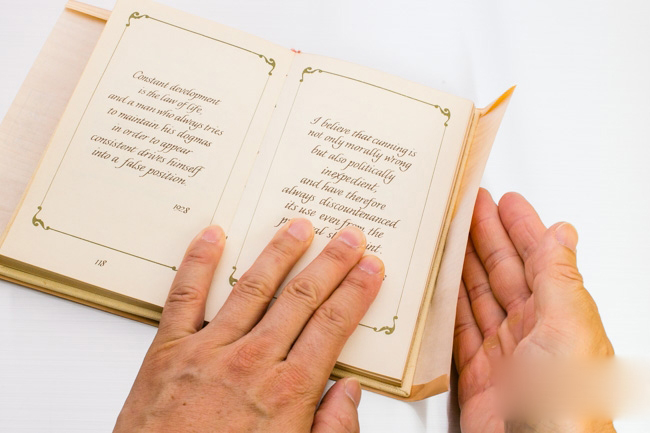 Constant development
is the law of life,
and a man who always tries
to maintain his dogmas
in order to appear
consistent drives himself
into a false position.
1928
118
I believe that cunning is
not only morally wrong
but also politically
inexpedient,
and have therefore
always discountenanced
its use even from the